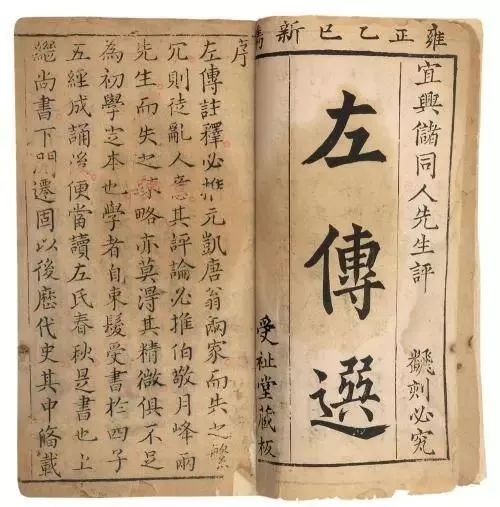 雍正乙巳新
宜興儲同人先生評
飜刻必究
左傳選
受祉堂藏板
序
左傳註釋必推元凱唐翁兩家而失之繁
冗則徒亂人意其評論必推伯敬月峰兩
先生而失之疎略亦莫得其精微俱不足
為初學定本也學者自束髮受書於四子
五經成誦後便當讀左氏春秋是書也上
繼尚書下開遷固以後歷代史其中備載